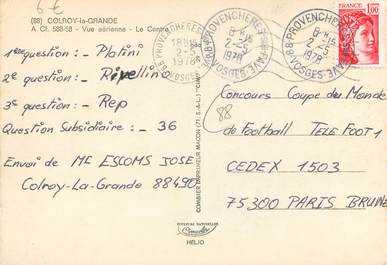 6 €
(88) COLROY-la-GRANDE
A Cl. 588-58 - Vue aérienne - Le Centre
1ère question : - Platini
2e question : - Rivellino
3e question : - Rep
Question Subsidiaire : - 36
Envoi de Mr ESCOMS JOSE
Colroy-La-Grande 88490
COMBIER IMPRIMEUR MACON (71. S.-&-L.)
COULEURS NATURELLES
Cimcolor
HÉLIO
88-PROVENCHERES
18H
2-5
1978
VOSGES
88-PROVENCHERES
2-5
1978
VOSGES
1,00
Concours Coupe du Monde
88
de Football TELE FOOT 1
CEDEX 1503
75300 PARIS BRUNE